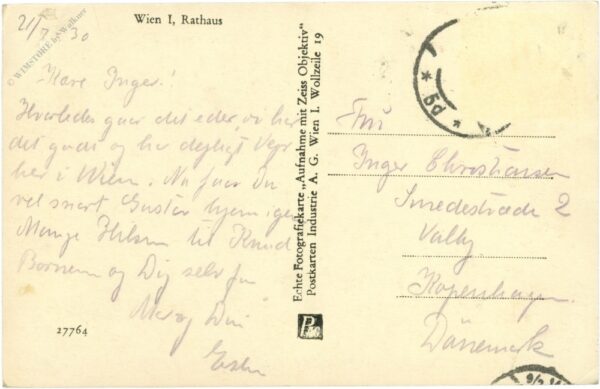 21/7 30
Wien I, Rathaus
WIMSTORE by Walkner
Kære Inger!
Hvorledes gaar det eder, vi har
det godt og har dejligt Vejr
her i Wien. Nu faar Du
vel snart Gustav hjem igen
Mange Hilsner til Knud
Børnene og Dig selv fra
Din
27764
Echte Fotografiekarte „Aufnahme mit Zeiss Objektiv"
Postkarten Industrie A. G. Wien I. Wollzeile 19
* 5d *
Fru
Inger Christiansen
Smedestræde 2
Valby
Kopenhagen
Dänemark